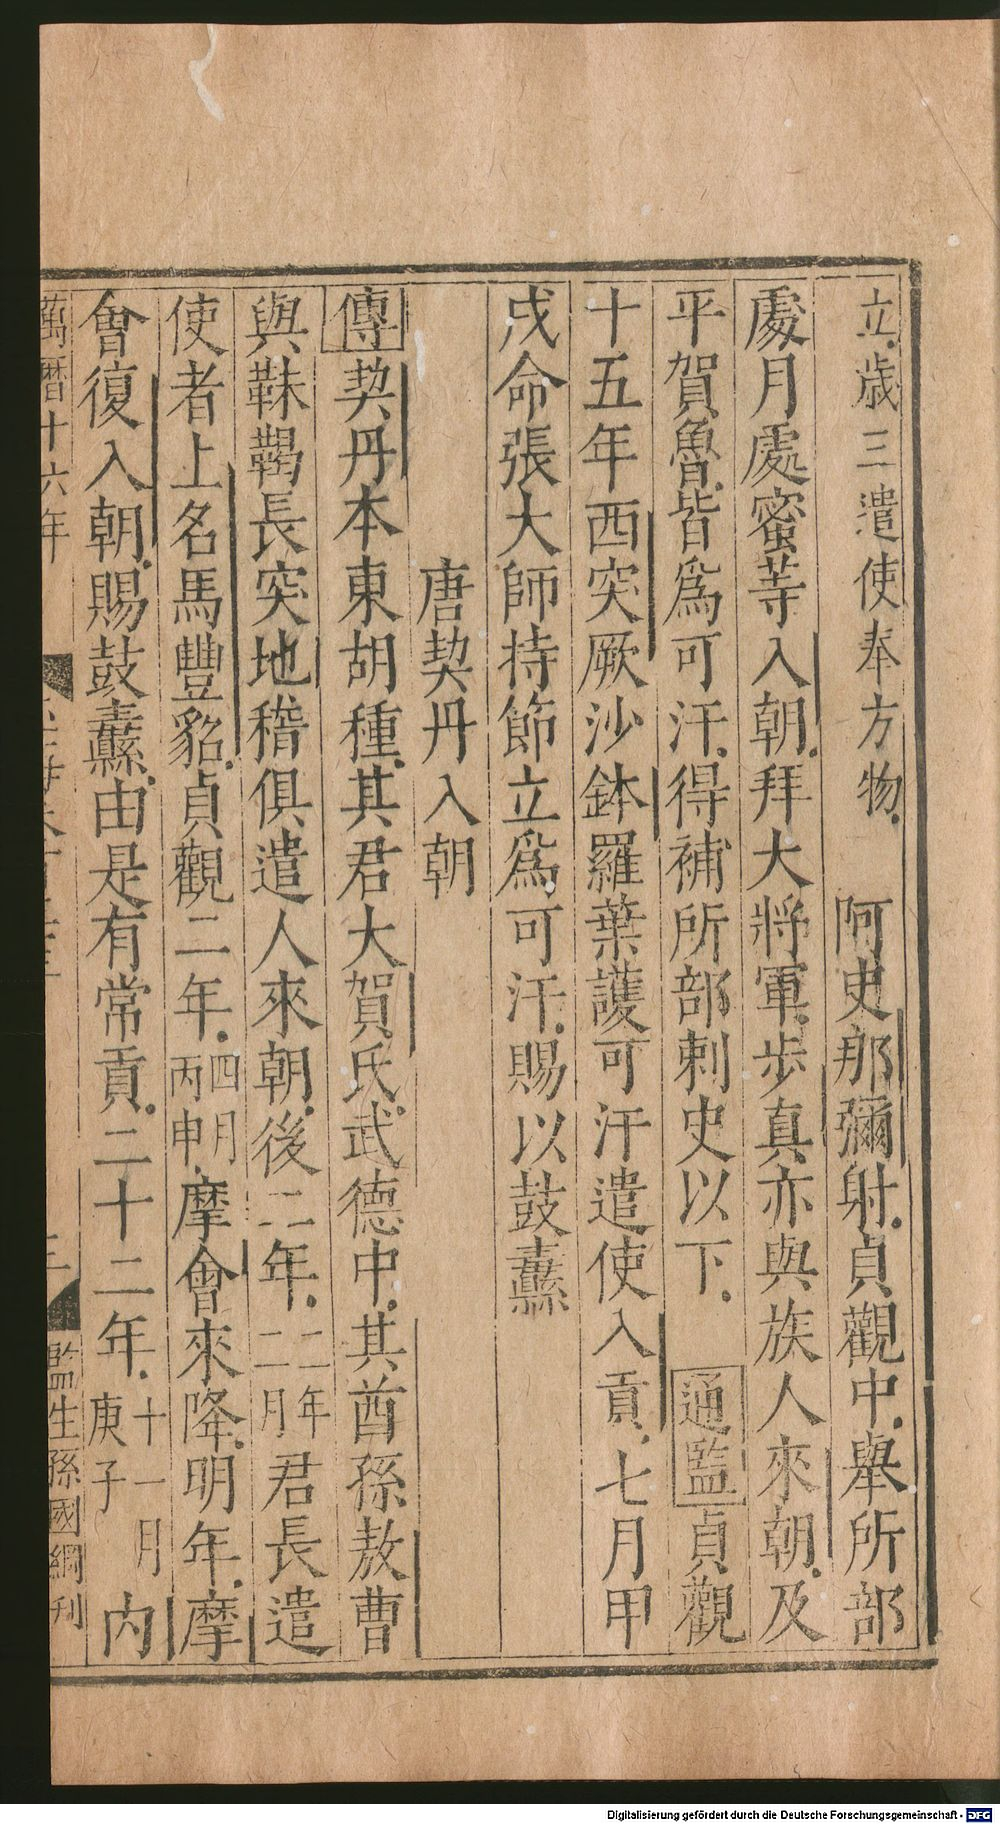 立歲三遣使奉方物　阿史那彌射貞觀中舉所部
處月處蜜等入朝拜大將軍步真亦與族人來朝及
平賀魯皆爲可汗得補所部刺史以下　通監貞觀
十五年西突厥沙鉢羅葉護可汗遣使入貢七月甲
戌命張大師持節立爲可汗賜以鼓纛
唐契丹入朝
傳契丹本東胡種其君大賀氏武德中其酋孫敖曹
與靺鞨長突地稽俱遣人來朝後二年二年二月君長遣
使者上名馬豐貂貞觀二年四月丙申摩會來降明年摩
會復入朝賜鼓纛由是有常貢二十二年十一月庚子内
萬曆十六年
監生孫國綱刊
Digitalisierung gefördert durch die Deutsche Forschungsgemeinschaft - DFG